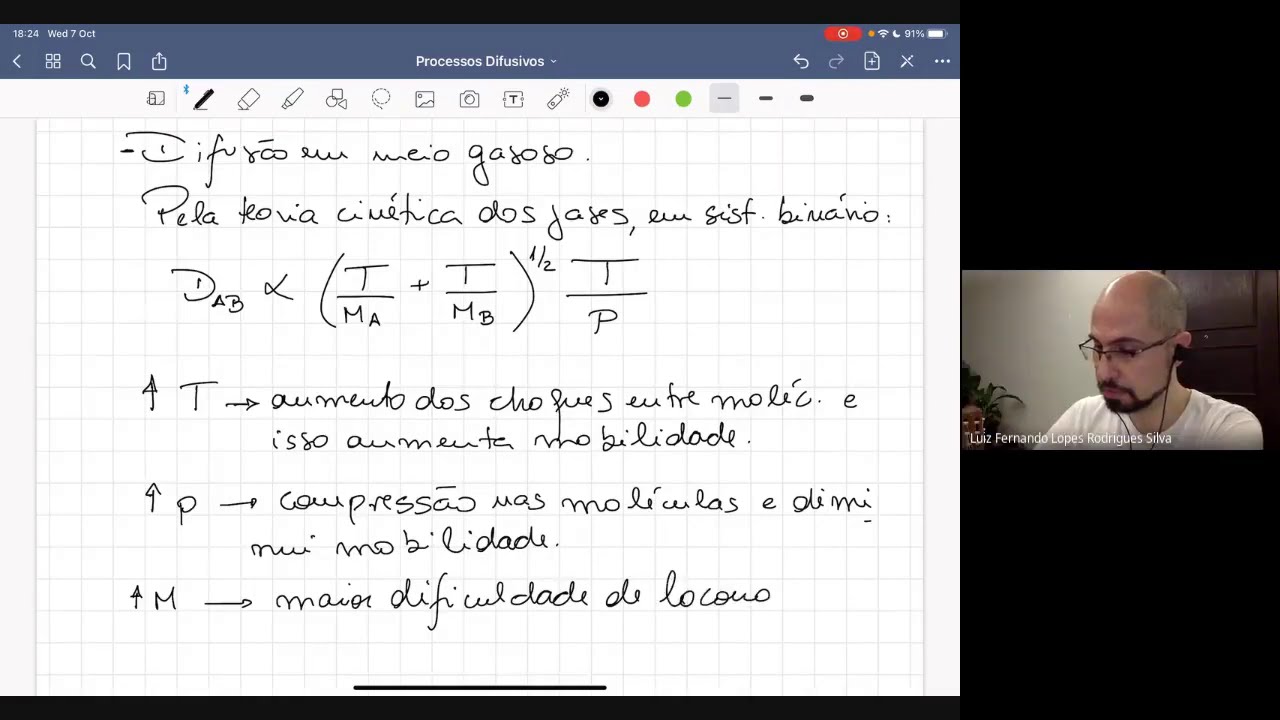 18:24 Wed 7 Oct
91%
Processos Difusivos
T
- Difusão em meio gasoso.
Pela teoria cinética dos gases, em sist. binário:
D_AB ∝ (T/M_A + T/M_B)^1/2 T/P
↑ T → aumento dos choques entre moléc. e
isso aumenta mobilidade.
↑ p → compressão nas moléculas e dimi
nui mobilidade.
↑ M → maior dificuldade de locomo
Luiz Fernando Lopes Rodrigues Silva